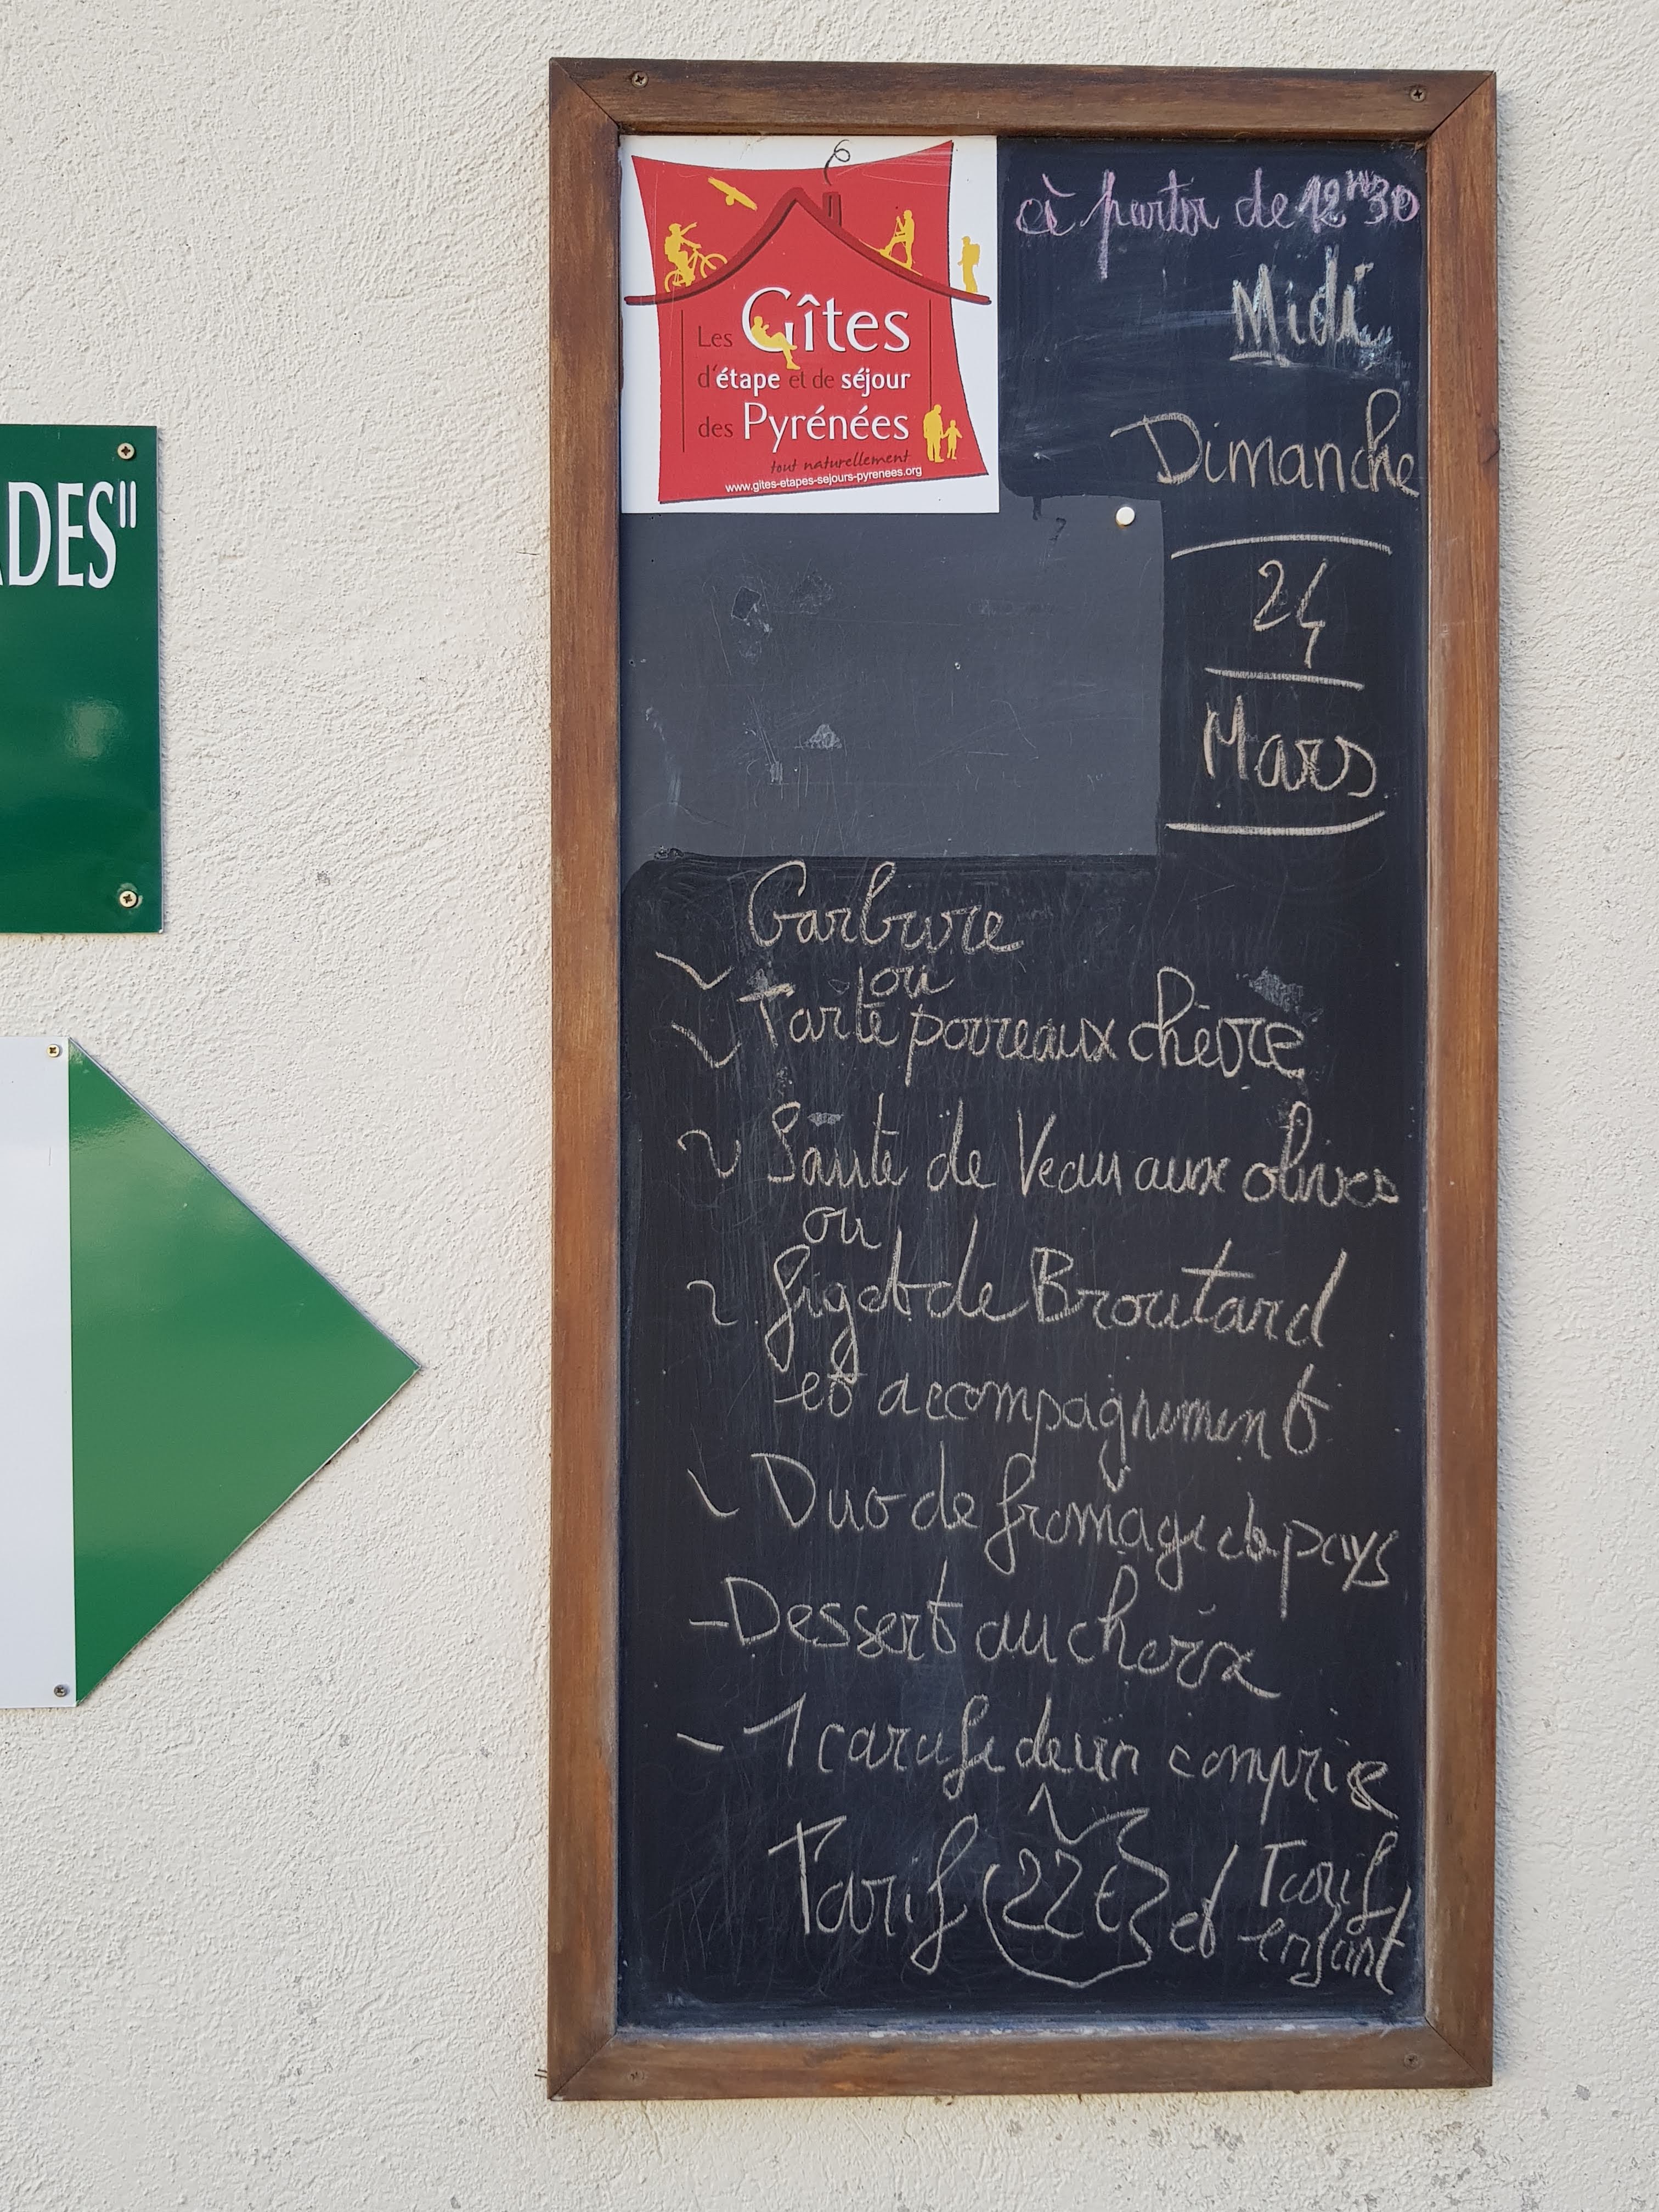 ADES"
Les Gîtes
d'étape et de séjour
des Pyrénées
tout naturellement
www.gites-etapes-sejours-pyrenees.org
à partir de 12H30
Midi
Dimanche
24
Mars
Garbure
ou
Tarte poireaux chèvre
Sauté de Veau aux olives
ou
Gigot de Broutard
et accompagnement
Duo de fromage de pays
- Dessert au choix
- 1 carafe de vin comprise
Tarif (22€} et Tarif
enfant